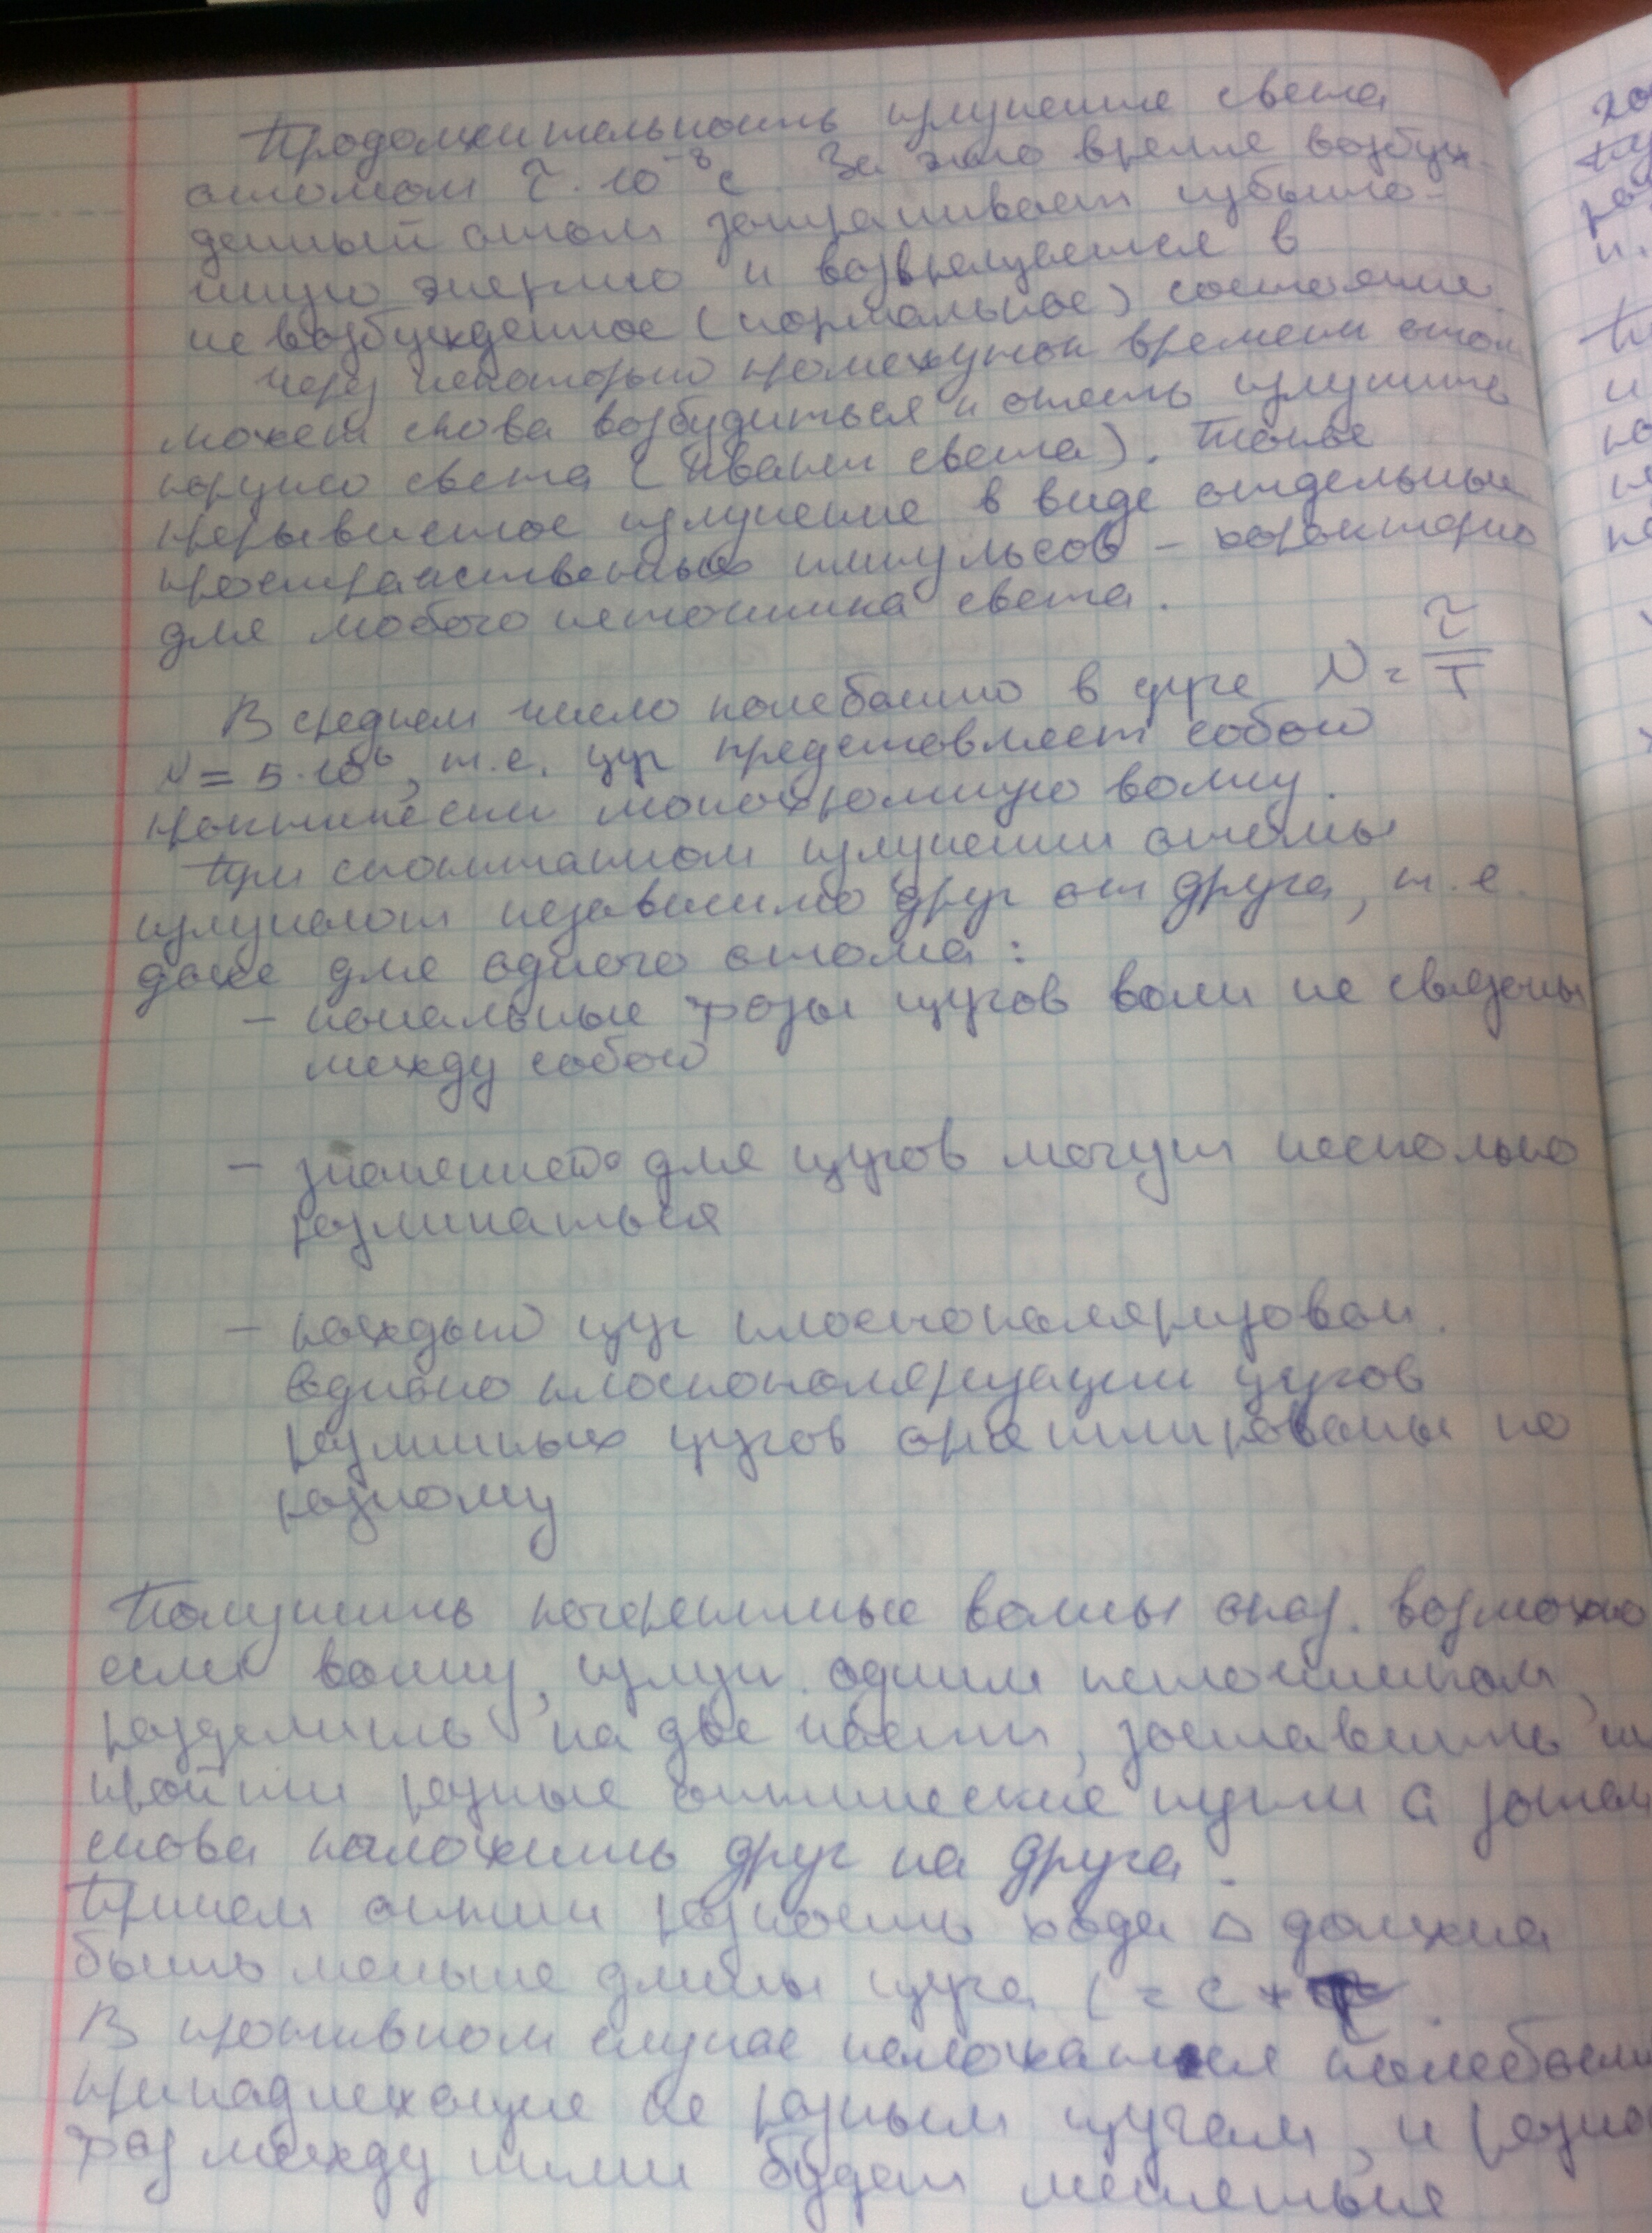 Продолжительность излучение света
атомом τ · 10⁻⁸ с. За это время возбуж-
денный атом затрачивает избыто-
чную энергию и возвращается в
не возбужденное (нормальное) состояние.
Через некоторый промежуток времени атом
может снова возбудиться и опять излучить
порцию света (квант света). Такое
прерывистое излучение в виде отдельных
пространственных импульсов – характерно
для любого источника света.
В среднем число колебаний в цуге N = τ/T
N = 5·10⁶, т.е. цуг представляет собой
практически монохромную волну.
При спонтанном излучении атомы
излучают независимо друг от друга, т.е.
даже для одного атома:
– начальные фазы цугов волн не связаны
между собой
– значение для цугов могут несколько
различаться
– каждый цуг плоскополяризован.
однако плоскополяризации цугов
различных цугов ориентированы по
разному
Получить когерентные волны возможно
если волну, излуч. одним источником,
разделить на две части, заставить
пройти разные оптические пути а затем
снова наложить друг на друга.
Причем оптич разность хода Δ должна
быть меньше длины цуга l = c *
В противном случае наложатся
принадлежащие разным цугам, и
фаз между ними будет меняться